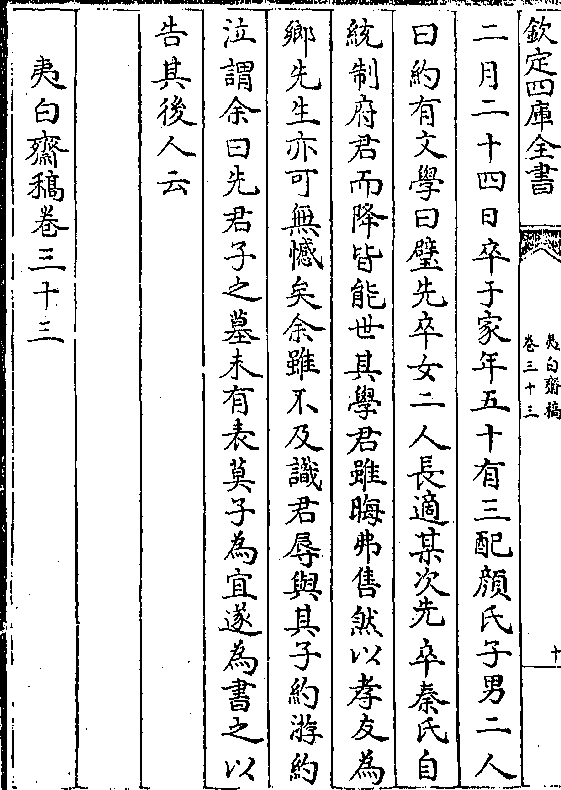 欽定四庫全書
夷白齋稿
卷三十三
十
二月二十四日卒于家年五十有三配顔氏子男二人
曰約有文學曰璧先卒女二人長適某次先卒秦氏自
統制府君而降皆能世其學君雖晦弗售然以孝友為
鄉先生亦可無憾矣余雖不及識君辱與其子約游約
泣謂余曰先君子之墓未有表莫子為宜遂為書之以
告其後人云
夷白齋稿卷三十三